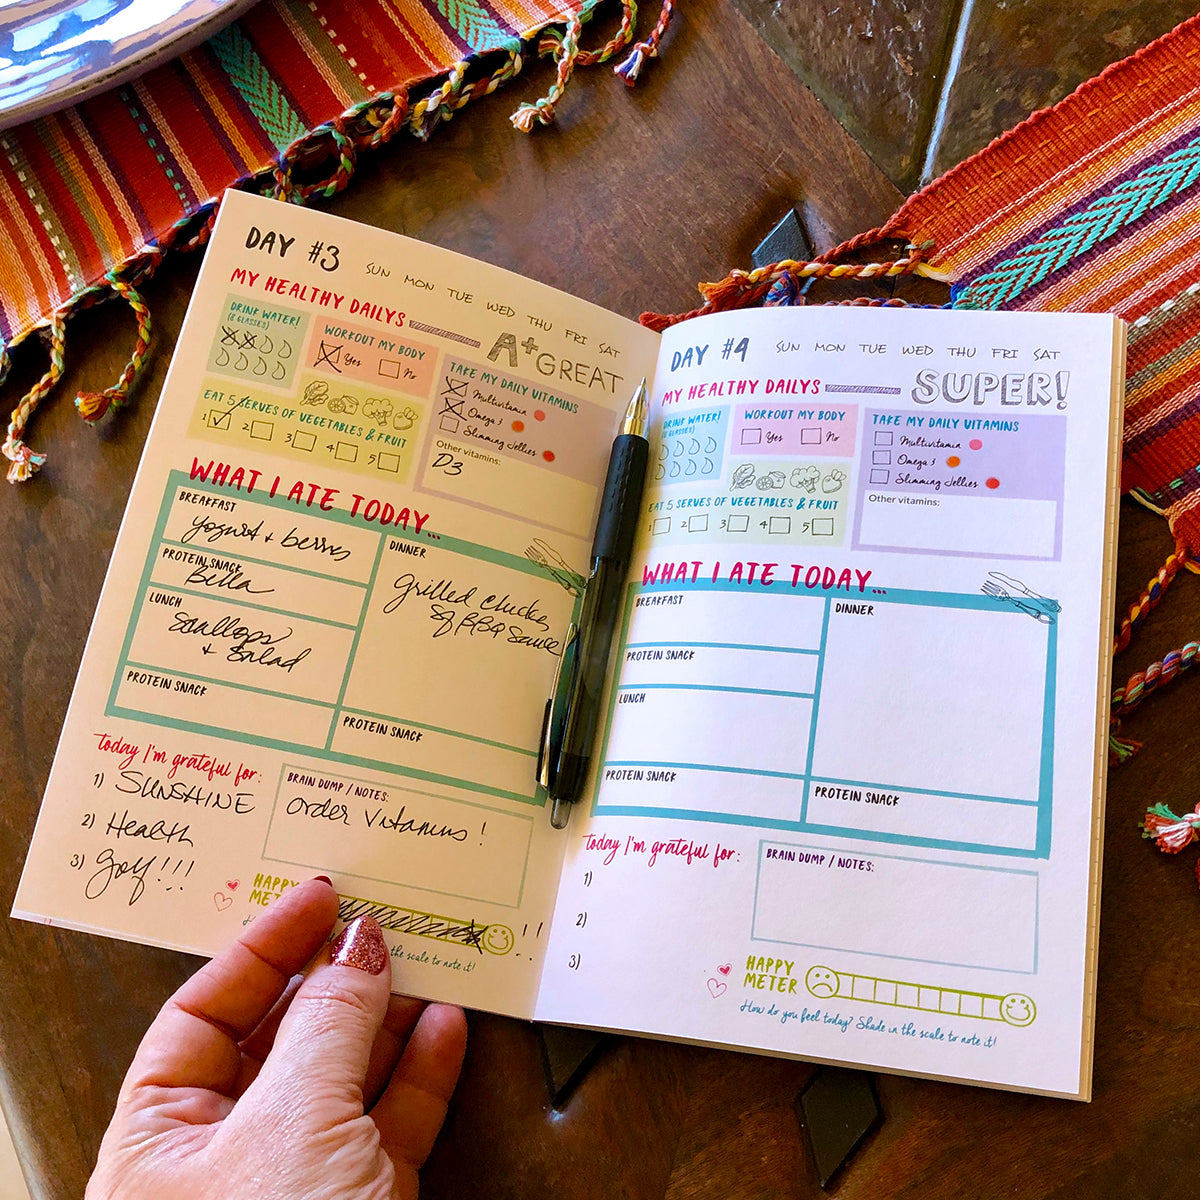 DAY #3
SUN MON TUE WED THU FRI SAT
MY HEALTHY DAILYS
A+ GREAT
DRINK WATER!
(8 GLASSES)
WORKOUT MY BODY
Yes No
EAT 5 SERVES OF VEGETABLES & FRUIT
1 2 3 4 5
TAKE MY DAILY VITAMINS
Multivitamin
Omega 3
Slimming Jellies
Other vitamins:
D3
WHAT I ATE TODAY...
BREAKFAST
yogurt + berries
PROTEIN SNACK
Bella
LUNCH
Scallops
+ Salad
PROTEIN SNACK
DINNER
grilled chicken
BBQ Sauce
PROTEIN SNACK
today I'm grateful for:
1) SUNSHINE
2) Health
3) Joy!!!
BRAIN DUMP / NOTES:
order vitamins!
HAPPY
METER
!!
the scale to note it!
DAY #4
SUN MON TUE WED THU FRI SAT
MY HEALTHY DAILYS
SUPER!
DRINK WATER!
(8 GLASSES)
WORKOUT MY BODY
Yes No
EAT 5 SERVES OF VEGETABLES & FRUIT
1 2 3 4 5
TAKE MY DAILY VITAMINS
Multivitamin
Omega 3
Slimming Jellies
Other vitamins:
WHAT I ATE TODAY...
BREAKFAST
PROTEIN SNACK
LUNCH
PROTEIN SNACK
DINNER
PROTEIN SNACK
today I'm grateful for:
1)
2)
3)
BRAIN DUMP / NOTES:
HAPPY
METER
How do you feel today? Shade in the scale to note it!